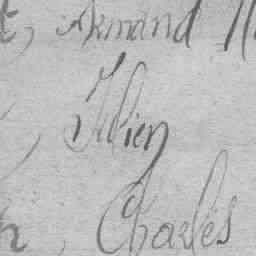 t, Armand
, Julien
, Charles